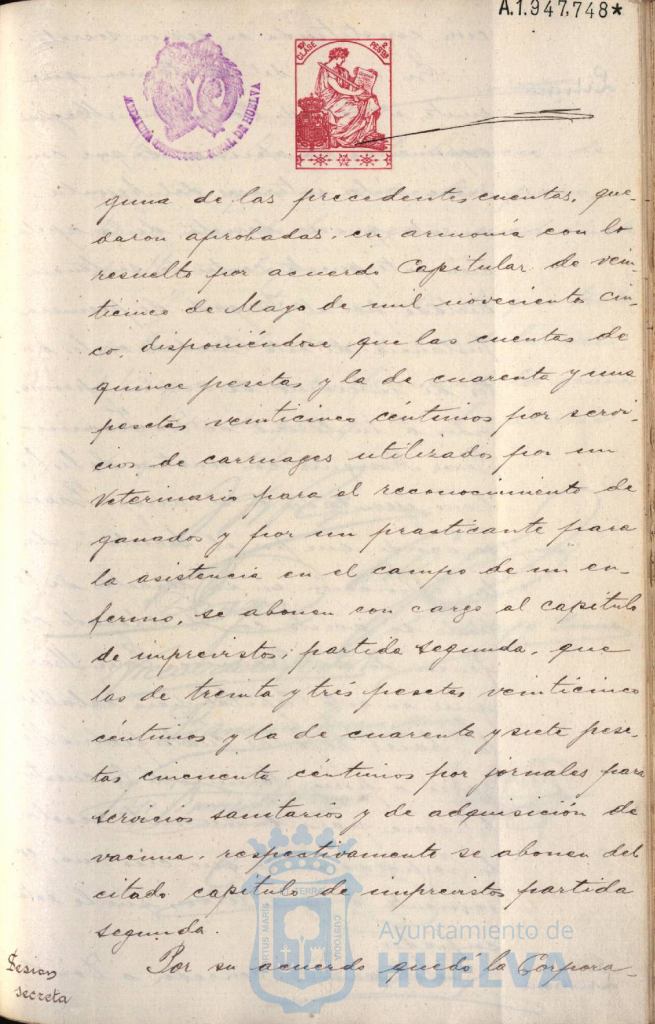 A.1.947,748*
10ª CLASE
2 PESETAS
ALCALDIA CONSTITUCIONAL DE HUELVA
guna de las precedentes cuentas, que-
daron aprobadas, en armonía con lo
resuelto por acuerdo Capitular de vein-
ticinco de Mayo de mil novecientos cin-
co, disponiéndose que las cuentas de
quince pesetas y la de cuarenta y una
pesetas veinticinco céntimos por servi-
cios de carruages utilizados por un
Veterinario para el reconocimiento de
ganados y por un practicante para
la asistencia en el campo de un en-
fermo, se abonen con cargo al capítulo
de imprevistos, partida segunda, que
las de treinta y tres pesetas veinticinco
céntimos y la de cuarenta y siete pese-
tas cincuenta céntimos por jornales para
servicios sanitarios y de adquisición de
vacuna, respectivamente se abonen del
citado capítulo de imprevistos partida
segunda.
Sesion
secreta
Por su acuerdo quedó la Corpora-
PORTUS MARIS ET TERRAE CUSTODIA
Ayuntamiento de
HUELVA